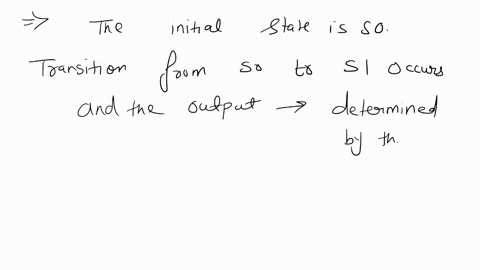 ⇒ The initial state is so.
Transition from so to S1 occurs
and the output → determined
by th.